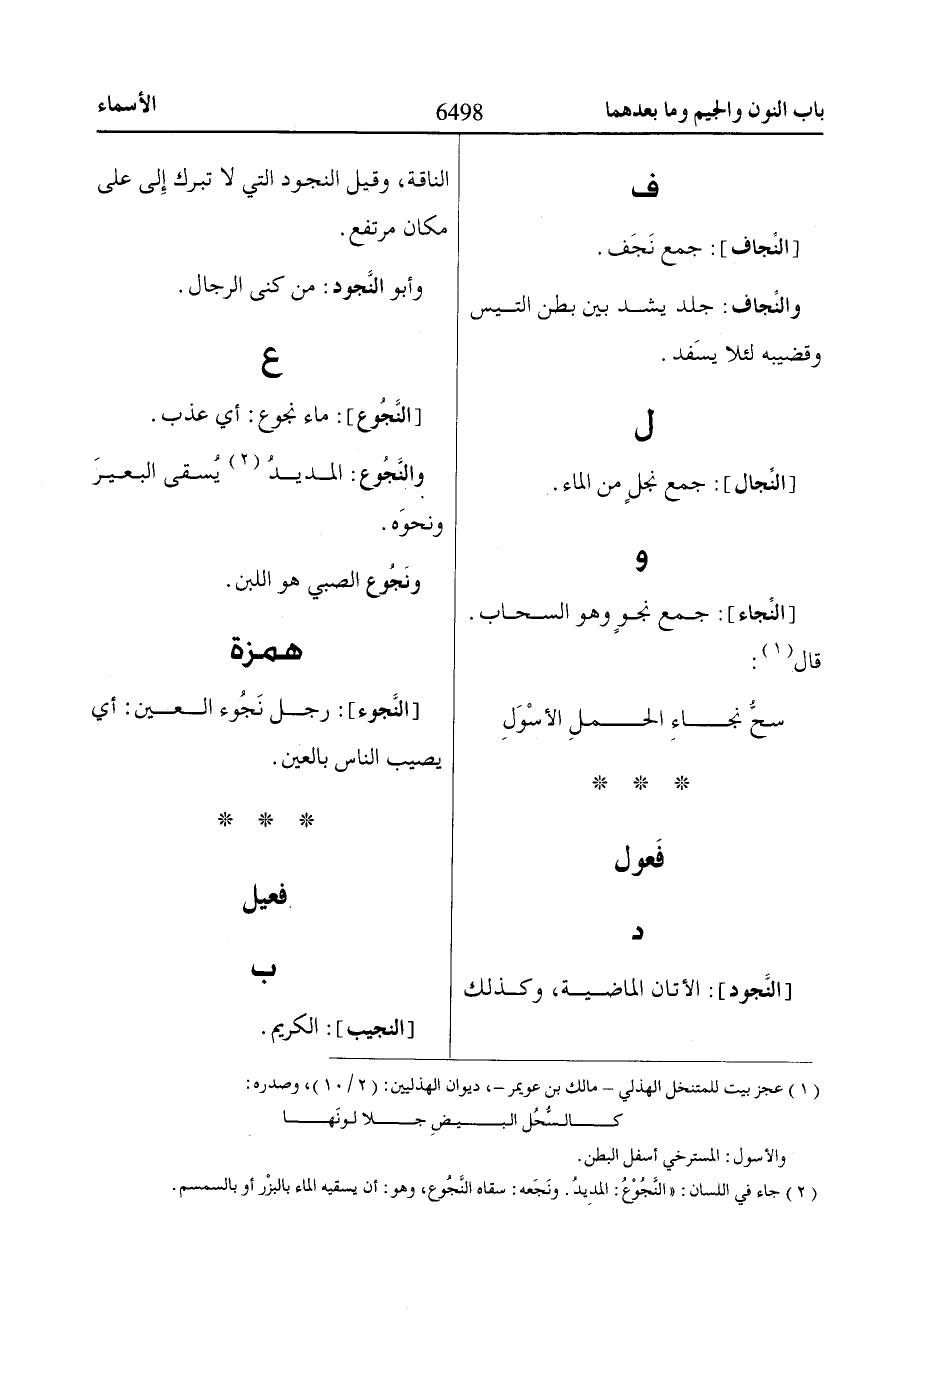 باب النون والجيم وما بعدهما
6498
الأسماء
ف
[النِّجاف]: جمع نَجَف.
والنِّجاف: جلد يشد بين بطن التيس
وقضيبه لئلا يسَفد.
ل
[النِّجال]: جمع نجلٍ من الماء.
و
[النِّجاء]: جمع نجوٍ وهو السحاب.
قال(١):
سحُّ نجاءِ الحملِ الأسْوَلِ
* * *
فَعول
د
[النَّجود]: الأتان الماضية، وكذلك
الناقة، وقيل النجود التي لا تبرك إلى على
مكان مرتفع.
وأبو النَّجود: من كنى الرجال.
ع
[النَّجُوع]: ماء نجوع: أي عذب.
والنَّجُوع: المديدُ(٢) يُسقى البعيرَ
ونحوَه.
ونَجُوع الصبي هو اللبن.
همزة
[النَّجوء]: رجل نَجُوء العين: أي
يصيب الناس بالعين.
* * *
فعيل
ب
[النجيب]: الكريم.
(١) عجز بيت للمتنخل الهذلي – مالك بن عويمر –، ديوان الهذليين: (١٠/٢)، وصدره:
كالسُّحُل البيضِ جلا لونَها
والأسول: المسترخي أسفل البطن.
(٢) جاء في اللسان: «النَّجُوْعُ: المديدُ. ونَجَعه: سقاه النَّجُوع، وهو: أن يسقيه الماء بالبزْر أو بالسمسم.